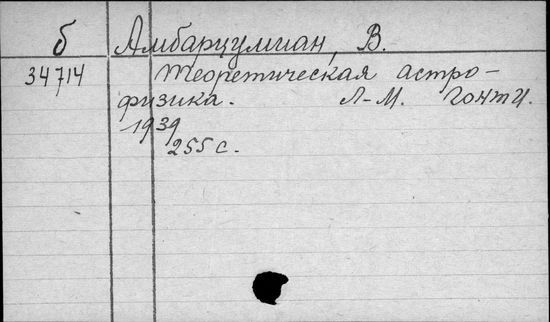 б Амбарцумиан, В.
34714 Теоретическая астро-
физика. Л-М. Гонти.
1939
255 с.